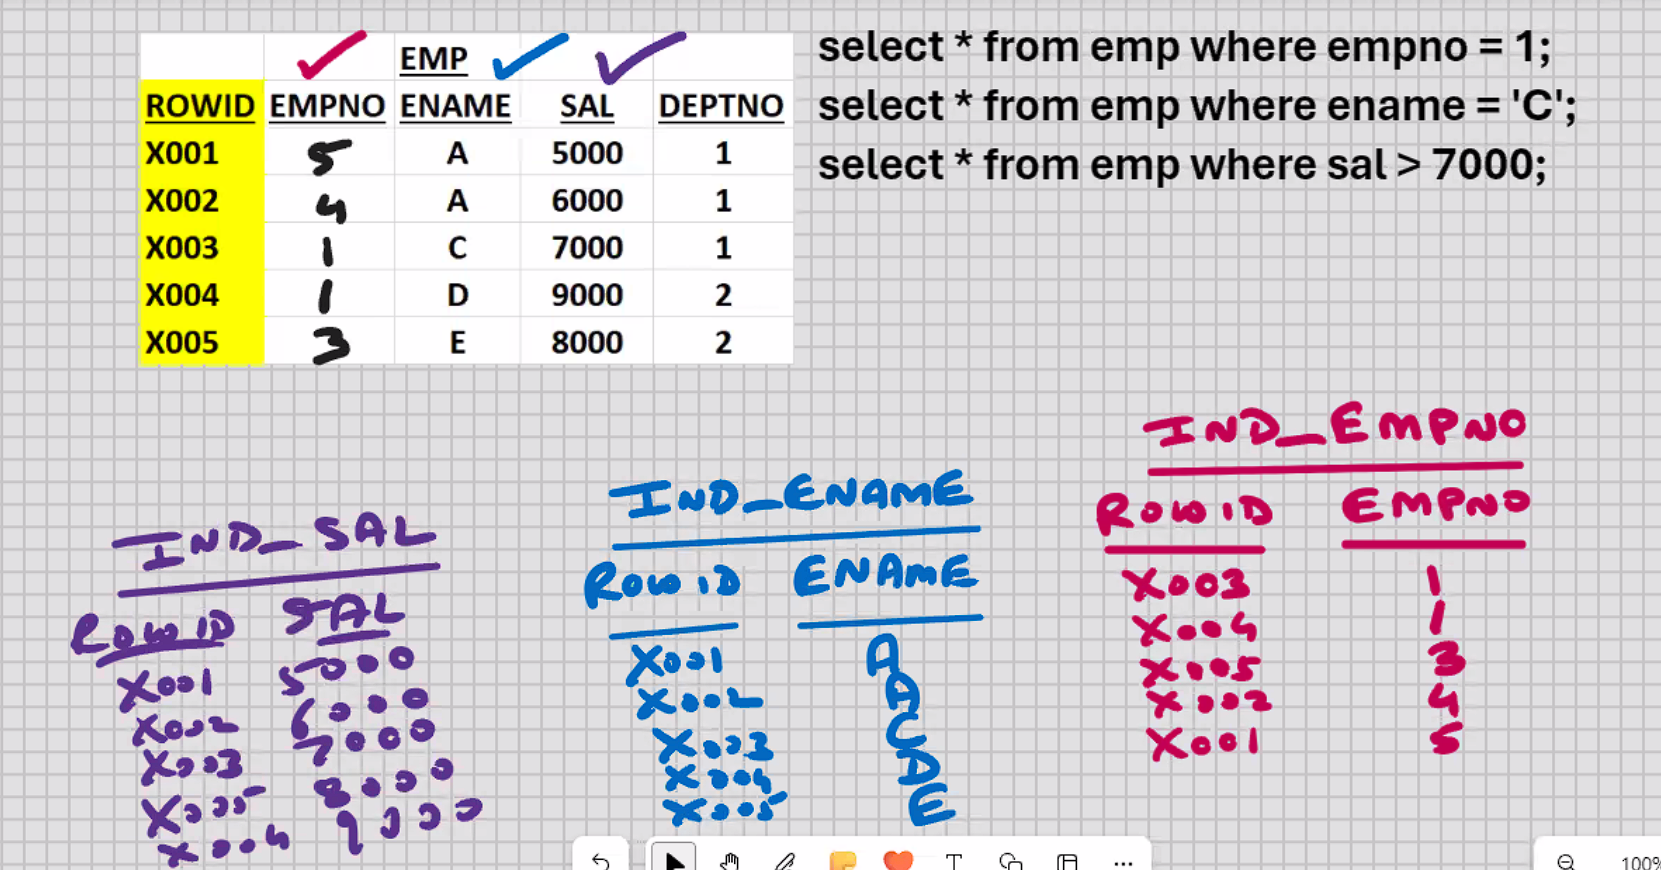 EMP
ROWID EMPNO ENAME SAL DEPTNO
X001 5 A 5000 1
X002 4 A 6000 1
X003 1 C 7000 1
X004 1 D 9000 2
X005 3 E 8000 2
select * from emp where empno = 1;
select * from emp where ename = 'C';
select * from emp where sal > 7000;
IND_SAL
ROWID SAL
X001 5000
X002 6000
X003 7000
X005 8000
X004 9000
IND_ENAME
ROWID ENAME
X001 A
X002 A
X003 C
X004 D
X005 E
IND_EMPNO
ROWID EMPNO
X003 1
X004 1
X005 3
X002 4
X001 5
T
100%